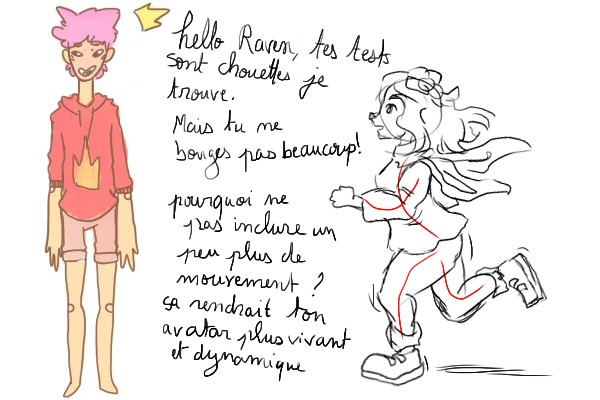 hello Raven, tes tests
sont chouettes je
trouve.
Mais tu ne
bouges pas beaucoup!
pourquoi ne
pas inclure un
peu plus de
mouvement ?
ça rendrait ton
avatar plus vivant
et dynamique